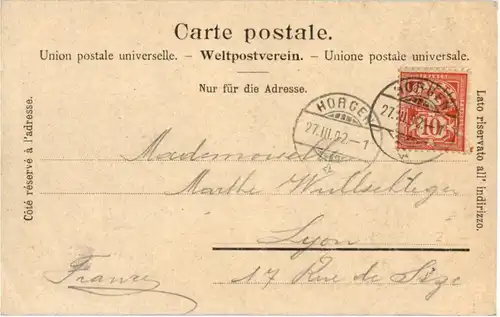 Carte postale.
Union postale universelle. – Weltpostverein. – Unione postale universale.
Nur für die Adresse.
Côté réservé à l'adresse.
Lato riservato all' indirizzo.
HORGEN
27.III.02.–1
HORGEN
10
Mademoiselle
Marthe Wullschleger
Lyon
France
17 Rue de Sèze